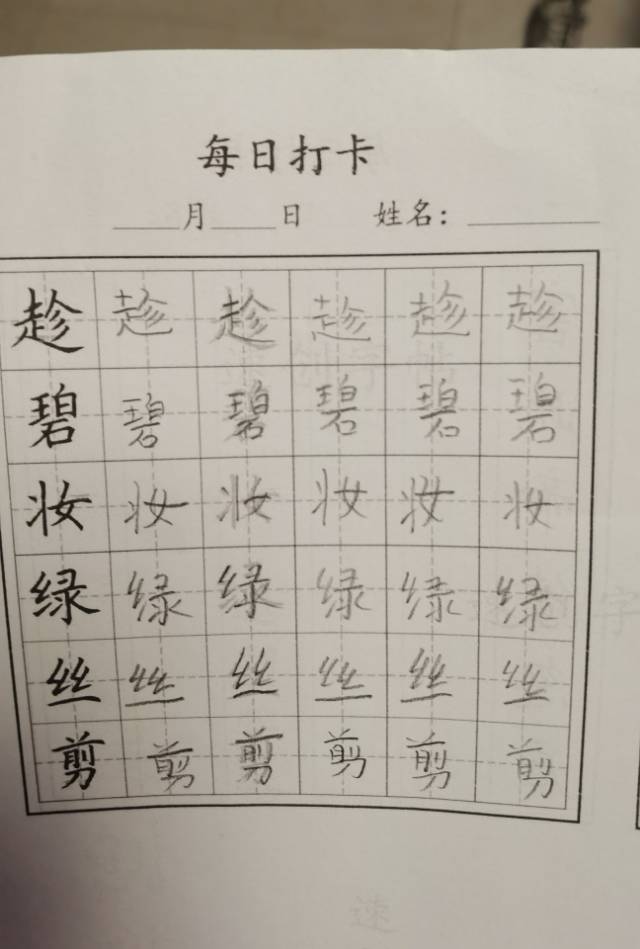 每日打卡
____月____日 姓名：________
趁 趁 趁 趁 趁 趁
碧 碧 碧 碧 碧 碧
妆 妆 妆 妆 妆 妆
绿 绿 绿 绿 绿 绿
丝 丝 丝 丝 丝 丝
剪 剪 剪 剪 剪 剪